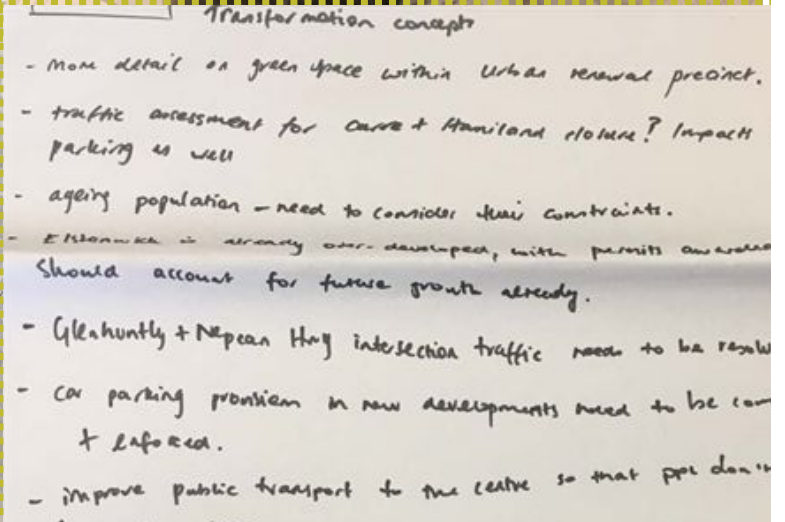 Transformation concepts
- More detail on green space within urban renewal precinct.
- traffic assessment for Carre + Hamiland closure? Impacts
parking as well
- ageing population - need to consider their constraints.
- Elsternwick is already over-developed, with permits awarded
Should account for future growth already.
- Glenhuntly + Nepean Hwy intersection traffic needs to be resolv
- car parking provision in new developments need to be com
+ enforced.
- improve public transport to the centre so that ppl don't